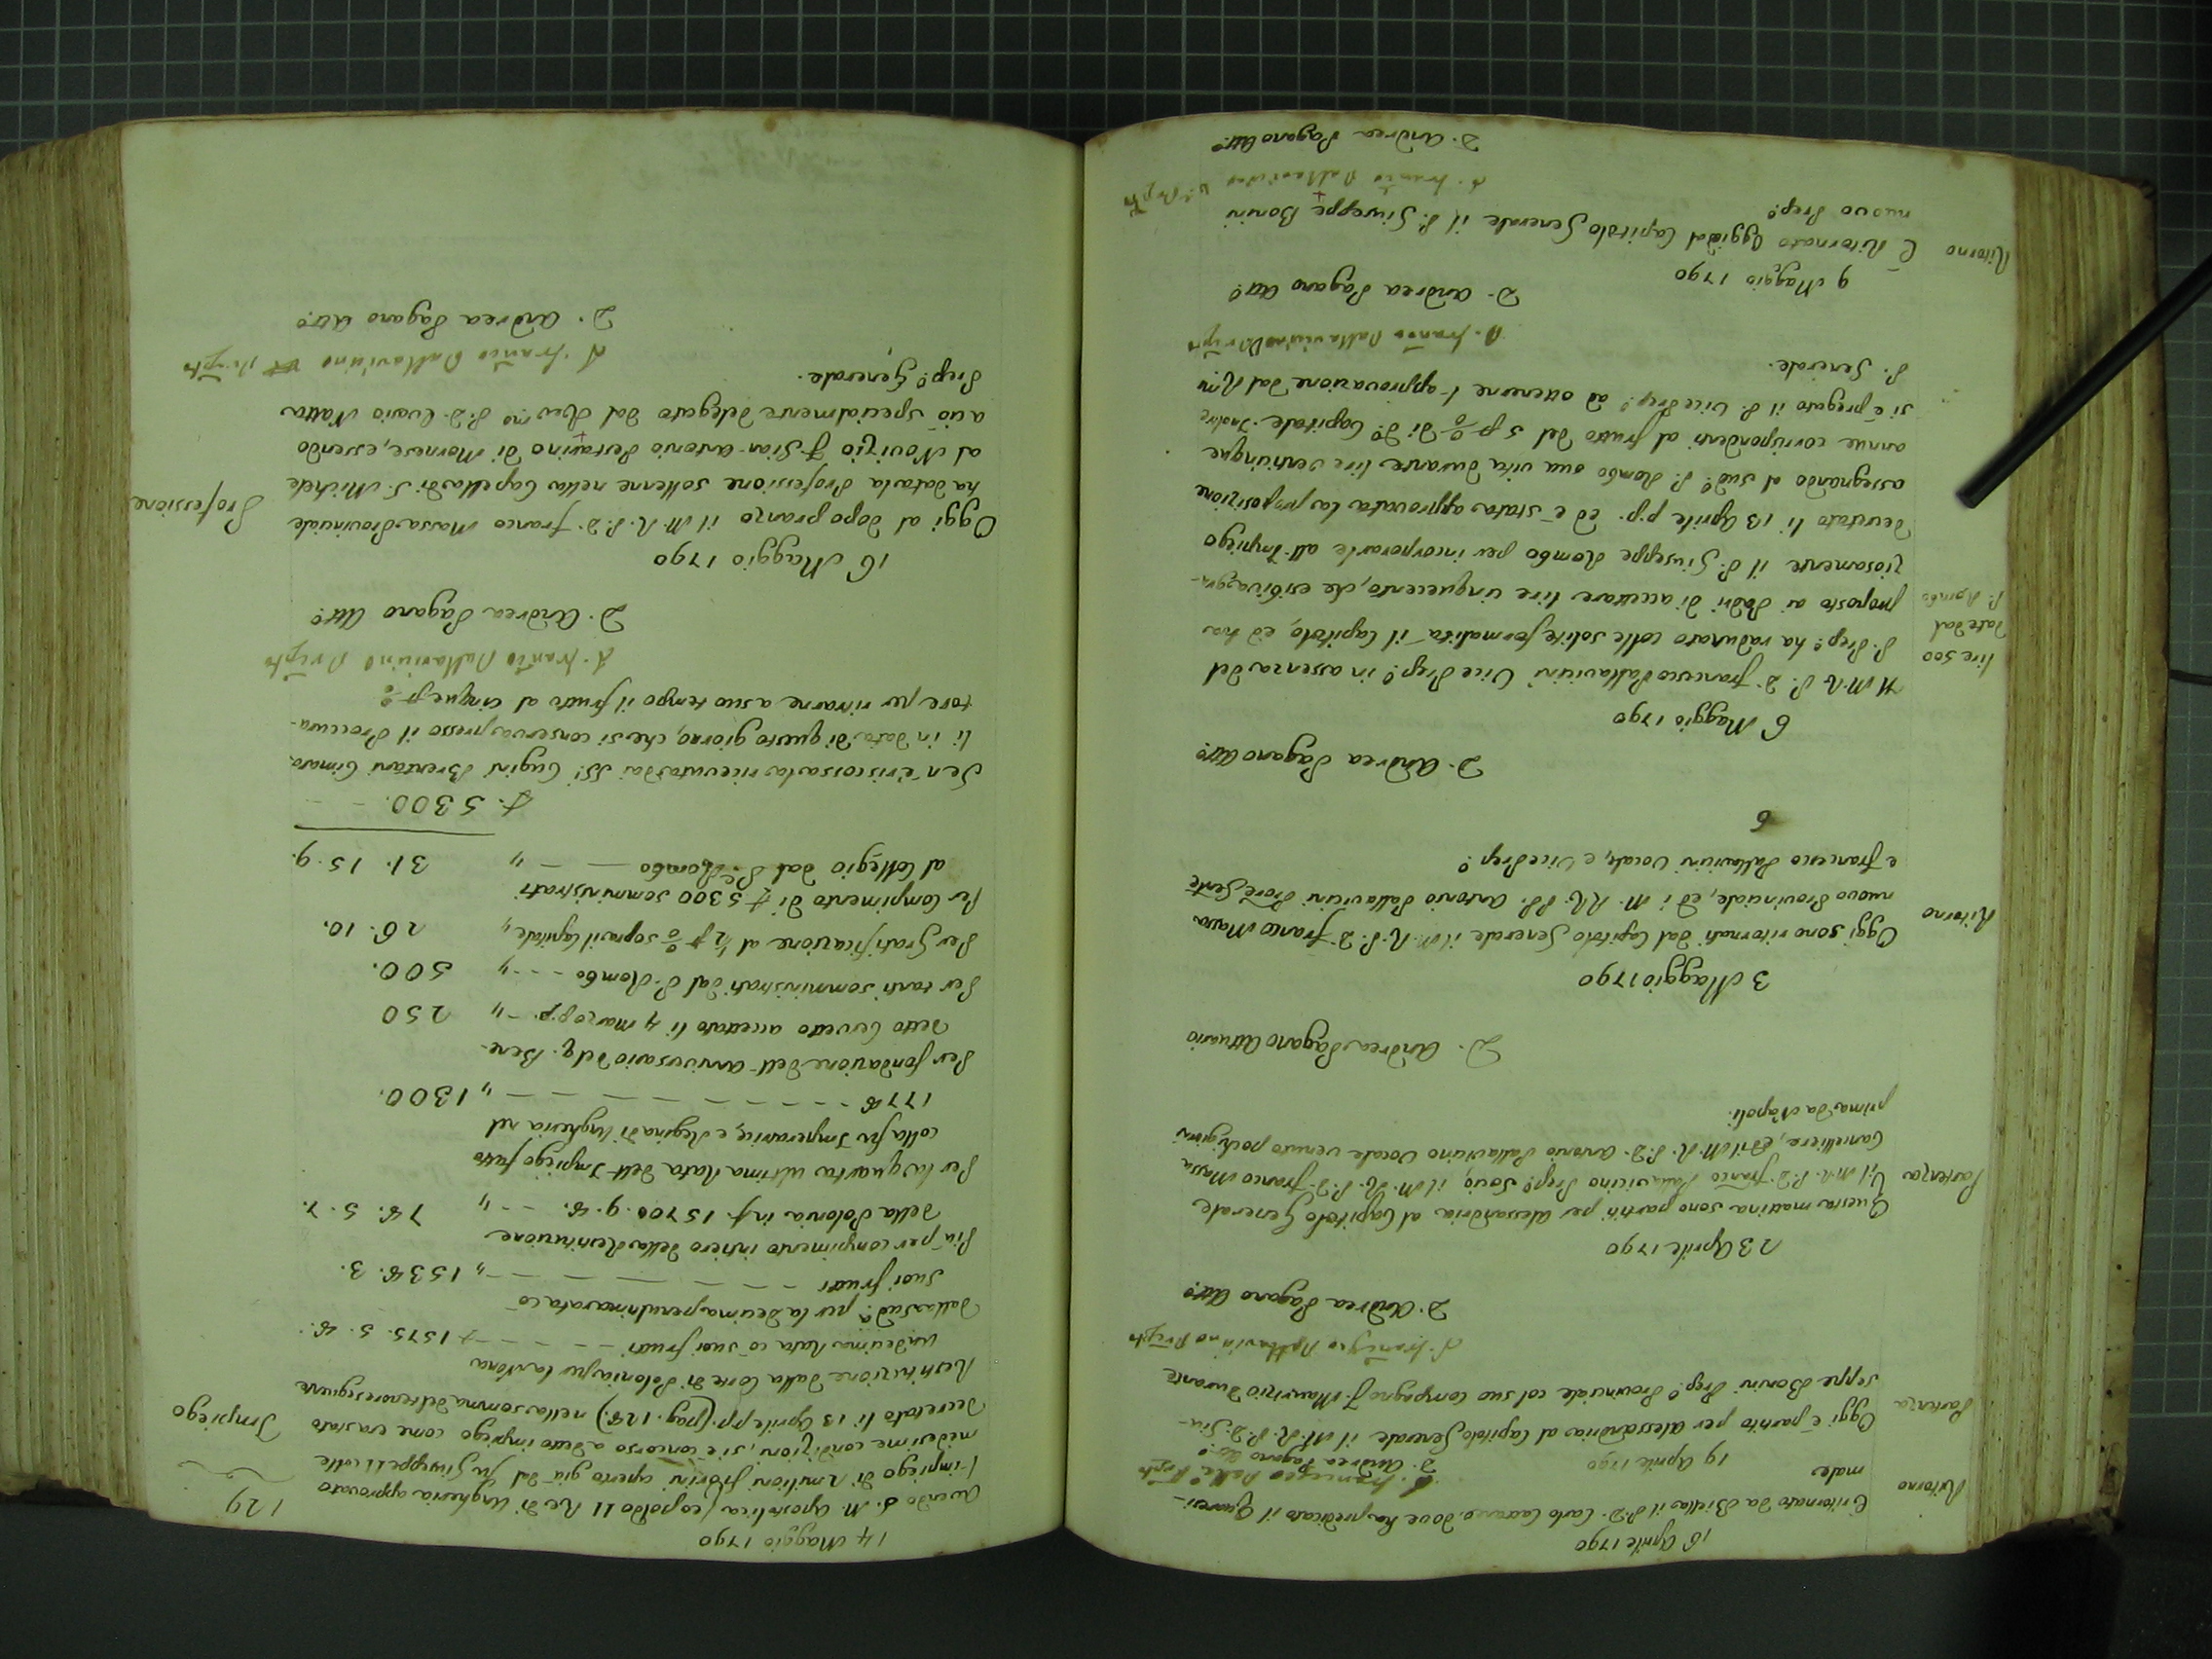 16 Aprile 1790
Ritorno
È ritornato da Biella il P. D. Carlo dove ha predicato il Quaresi-
male
D. Andrea Pagano Att.o
19 Aprile 1790
Partenza
Oggi è partito per Alessandria al Capitolo Generale il M. R. P. D. Giu-
seppe Bonini Prep.o Provinciale col suo Compagno f. Maurizio Durante
D. Francesco Pallavicino
D. Andrea Pagano Att.o
23 Aprile 1790
Partenza
Questa mattina sono partiti per Alessandria al Capitolo Generale
il M. R. P. D. Franco Pallavicino Prep.o Socio, il M. R. P. D. Franco Massa
Cancelliere, ed il M. R. P. D. Antonio Pallavicino Vocale venuto pochi giorni
prima da Napoli.
D. Andrea Pagano Attuario
3 Maggio 1790
Ritorno
Oggi sono ritornati dal Capitolo Generale il M. R. P. D. Franco Massa
nuovo Provinciale, ed i M. RR. PP. Antonio Pallavicini
e Francesco Pallavicini Vocale, e Vice Prep.o
6
D. Andrea Pagano Att.o
6 Maggio 1790
lire 500
date dal
P. Rombo
Il M. R. P. D. Francesco Pallavicini Vice Prep.o in assenza del
P. Prep.o ha radunato colle solite formalità il Capitolo, ed ha
proposto ai Padri di accettare lire cinquecento, che esibiva gra-
ziosamente il P. Giuseppe Rombo per incorporarle all'Impiego
decretato li 13 Aprile p.p. ed è stata approvata la proposizione
assegnando al sud.o P. Rombo sua vita durante lire venticinque
annue corrispondenti al frutto del 5 p % di d.o Capitale. Inoltre
si è pregato il P. Vice Prep.o ad ottenerne l'approvazione dal R.mo
P. Generale.
D. Franco Pallavicino
D. Andrea Pagano Att.o
9 Maggio 1790
Ritorno
È Ritornato Oggi dal Capitolo Generale il P. Giuseppe Bonini
nuovo Prep.o
D. Franco Pallavicino
D. Andrea Pagano Att.o
14 Maggio 1790
129
Avendo S. M. Apostolica Leopoldo II Re di Ungheria approvato
l'impiego di 2 milioni fiorini aperto già dal fu Giuseppe II colle
Impiego
medesime condizioni, si è concorso a detto impiego come era stato
decretato li 13 Aprile pp. (pag. 128.) nella somma del tenore seguente
Restituzione dalla Corte di Polonia per la nona
undecima Rata co' suoi frutti - - - £ 1575. 5. 8.
Dalla sud.a per la decima penultima rata co'
suoi frutti - - - - - - - " 1538. 3.
Più per compimento intiero della Restituzione
della Polonia in f. 15700. 9. 8. - - " 78. 5. 7.
Per la quarta ultima Rata dell'Impiego fatto
colla fu Imperatrice, e Regina di Ungheria nel
1778 - - - - - - - - " 1300.
Per fondazione dell'anniversario del q. Bene-
detto Cevasco accettato li 4 marzo p.p. - " 250
Per tanti somministrati dal P. Rombo - - " 500.
Per Gratificazione al 1/2 p % sopra il Capitale " 26. 10.
Per Compimento di £ 5300 somministrati
al Collegio dal P. Rombo - - " 31. 15. 9.
£. 5300. - -
Se n'è riscossa la ricevuta dai SS.i Cugini Brentani Cimaro-
li in data di questo giorno, che si conserva presso il Proccura-
tore per ritrarne a suo tempo il frutto al cinque p %
D. Franco Pallavicino
D. Andrea Pagano Att.o
16 Maggio 1790
Professione
Oggi al dopo pranzo il M. R. P. D. Franco Massa Provinciale
ha data la Professione solenne nella Capella di S. Michele
al Novizio f. Gian-Antonio Pestarino di Mornese, essendo
a ciò specialmente delegato dal Rev.mo P. D. Evasio Natta
Prep.o Generale.
D. Franco Pallavicino
D. Andrea Pagano Att.o